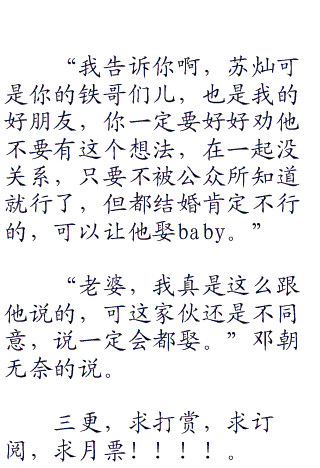 “我告诉你啊，苏灿可
是你的铁哥们儿，也是我的
好朋友，你一定要好好劝他
不要有这个想法，在一起没
关系，只要不被公众所知道
就行了，但都结婚肯定不行
的，可以让他娶baby。”
“老婆，我真是这么跟
他说的，可这家伙还是不同
意，说一定会都娶。”邓朝
无奈的说。
三更，求打赏，求订
阅，求月票！！！！。